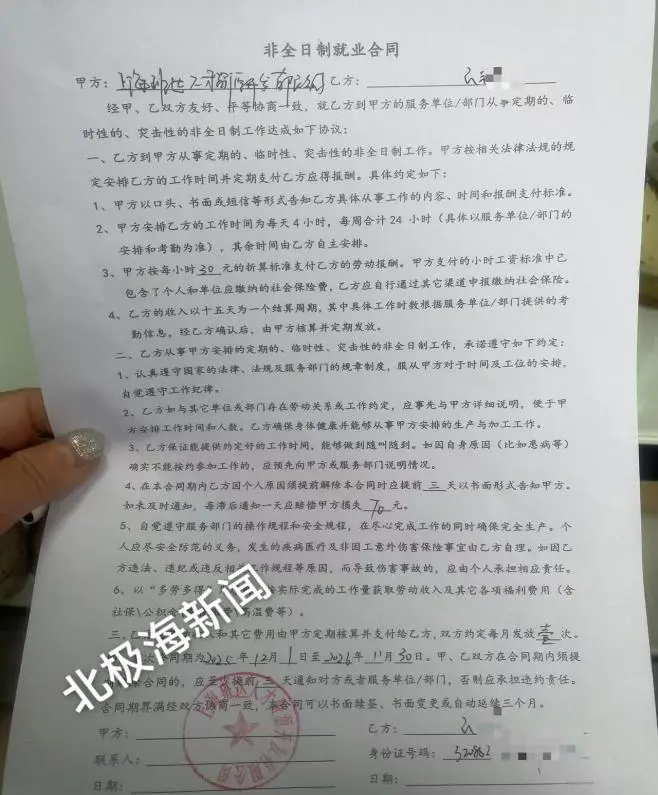 非全日制就业合同
甲方： 乙方：
经甲、乙双方友好、平等协商一致，就乙方到甲方的服务单位/部门从事定期的、临
时性的、突击性的非全日制工作达成如下协议：
一、乙方到甲方从事定期的、临时性、突击性的非全日制工作。甲方按相关法律法规的规
定安排乙方的工作时间并定期支付乙方应得报酬。具体约定如下：
1、甲方以口头、书面或短信等形式告知乙方具体从事工作的内容、时间和报酬支付标准。
2、甲方安排乙方的工作时间为每天4小时，每周合计24 小时（具体以服务单位/部门的
安排和考勤为准），其余时间由乙方自主安排。
3、甲方按每小时30元的折算标准支付乙方的劳动报酬。甲方支付的小时工资标准中已
包含了个人和单位应缴纳的社会保险费，乙方应自行通过其它渠道申报缴纳社会保险。
4、乙方的收入以十五天为一个结算周期，其中具体工作时数根据服务单位/部门提供的考
勤信息，经乙方确认后，由甲方核算并定期发放。
二、乙方从事甲方安排的定期的、临时性、突击性的非全日制工作，承诺遵守如下约定：
1、认真遵守国家的法律、法规及服务部门的规章制度，服从甲方对于时间及工位的安排，
自觉遵守工作纪律。
2、乙方如与其它单位或部门存在劳动关系或工作约定，应事先与甲方详细说明，便于甲
方安排工作时间和人数。乙方确保身体健康并能够从事甲方安排的生产与加工工作。
3、乙方保证能提供约定好的工作时间，能够做到随叫随到。如因自身原因（比如患病等）
确实不能按约参加工作的，应预先向甲方或服务部门说明情况。
4、在本合同期内乙方因个人原因须提前解除本合同时应提前 三 天以书面形式告知甲方。
如未及时通知，每滞后通知一天应赔偿甲方损失 70 元。
5、自觉遵守服务部门的操作规程和安全规程，在尽心完成工作的同时确保完全生产。个
人应尽安全防范的义务，发生的疾病医疗及非因工意外伤害保险事宜由乙方自理。如因乙
方违法、违纪或违反相关工作规程等原因，而导致伤害事故的，应由个人承担相应责任。
6、以“多劳多得” 按实际完成的工作量获取劳动收入及其它各项福利费用（含
社保\公积金 高温费等）。
三、乙 和其它费用由甲方定期核算并支付给乙方，双方约定每月发放壹次。
同期为2025年12月1日至2026年11月30日。甲、乙双方在合同期内须提
合同的，应 提前三天通知对方或者服务单位/部门，否则应承担违约责任。
合同期界满经双方协商一致，本合同可以书面续签、书面变更或自动延续三个月。
甲方： 乙方：
联系人： 身份证号码：320882
日期： 日期：
北极海新闻